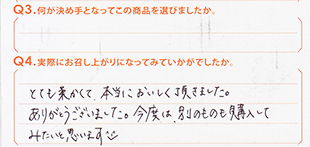 Q3.何が決め手となってこの商品を選びましたか。
Q4.実際にお召し上がりになってみていかがでしたか。
とても柔かくて、本当においしく頂きました。
ありがとうございましたこ。今度は、別のものも購入して
みたいと思います